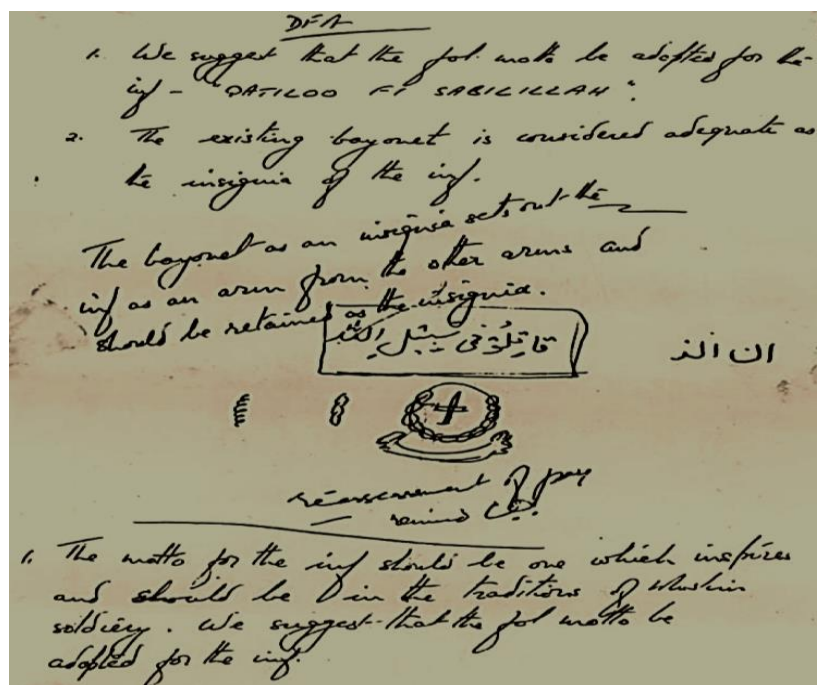 DFA
1. We suggest that the fol. motto be adopted for the
inf - "QATILOO FI SABILILLAH".
2. The existing bayonet is considered adequate as
the insignia of the inf.
The bayonet as an insignia sets out the
inf as an arm from the other arms and
should be retained as the insignia.
قاتلو فی سبیل اللہ
ان الذ
reassessment of pay
remind
1. The motto for the inf should be one which inspires
and should be in the traditions of Muslim
soldiery. We suggest that the fol motto be
adopted for the inf.